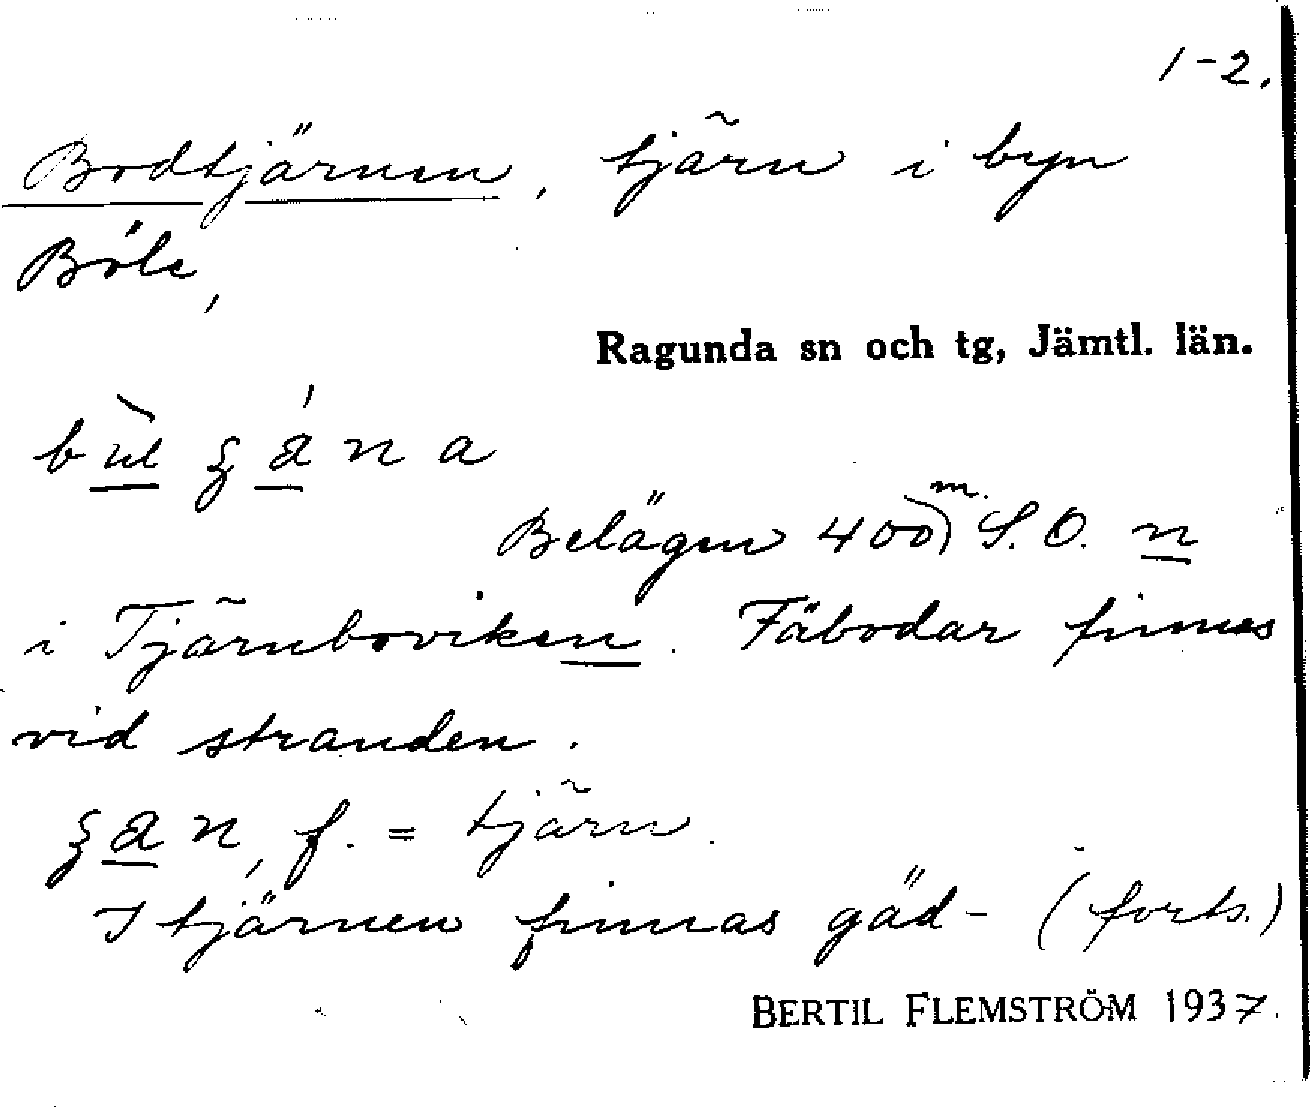 1-2.
Bodtjärnen, tjärn i byn
Böle,
Ragunda sn och tg, Jämtl. län.
Belägen 400 m. S.O. n
i Tjärnboviken. Fäbodar finnes
vid stranden.
f. = tjärn.
I tjärnen finnas gäd- (forts.)
BERTIL FLEMSTRÖM 1937.